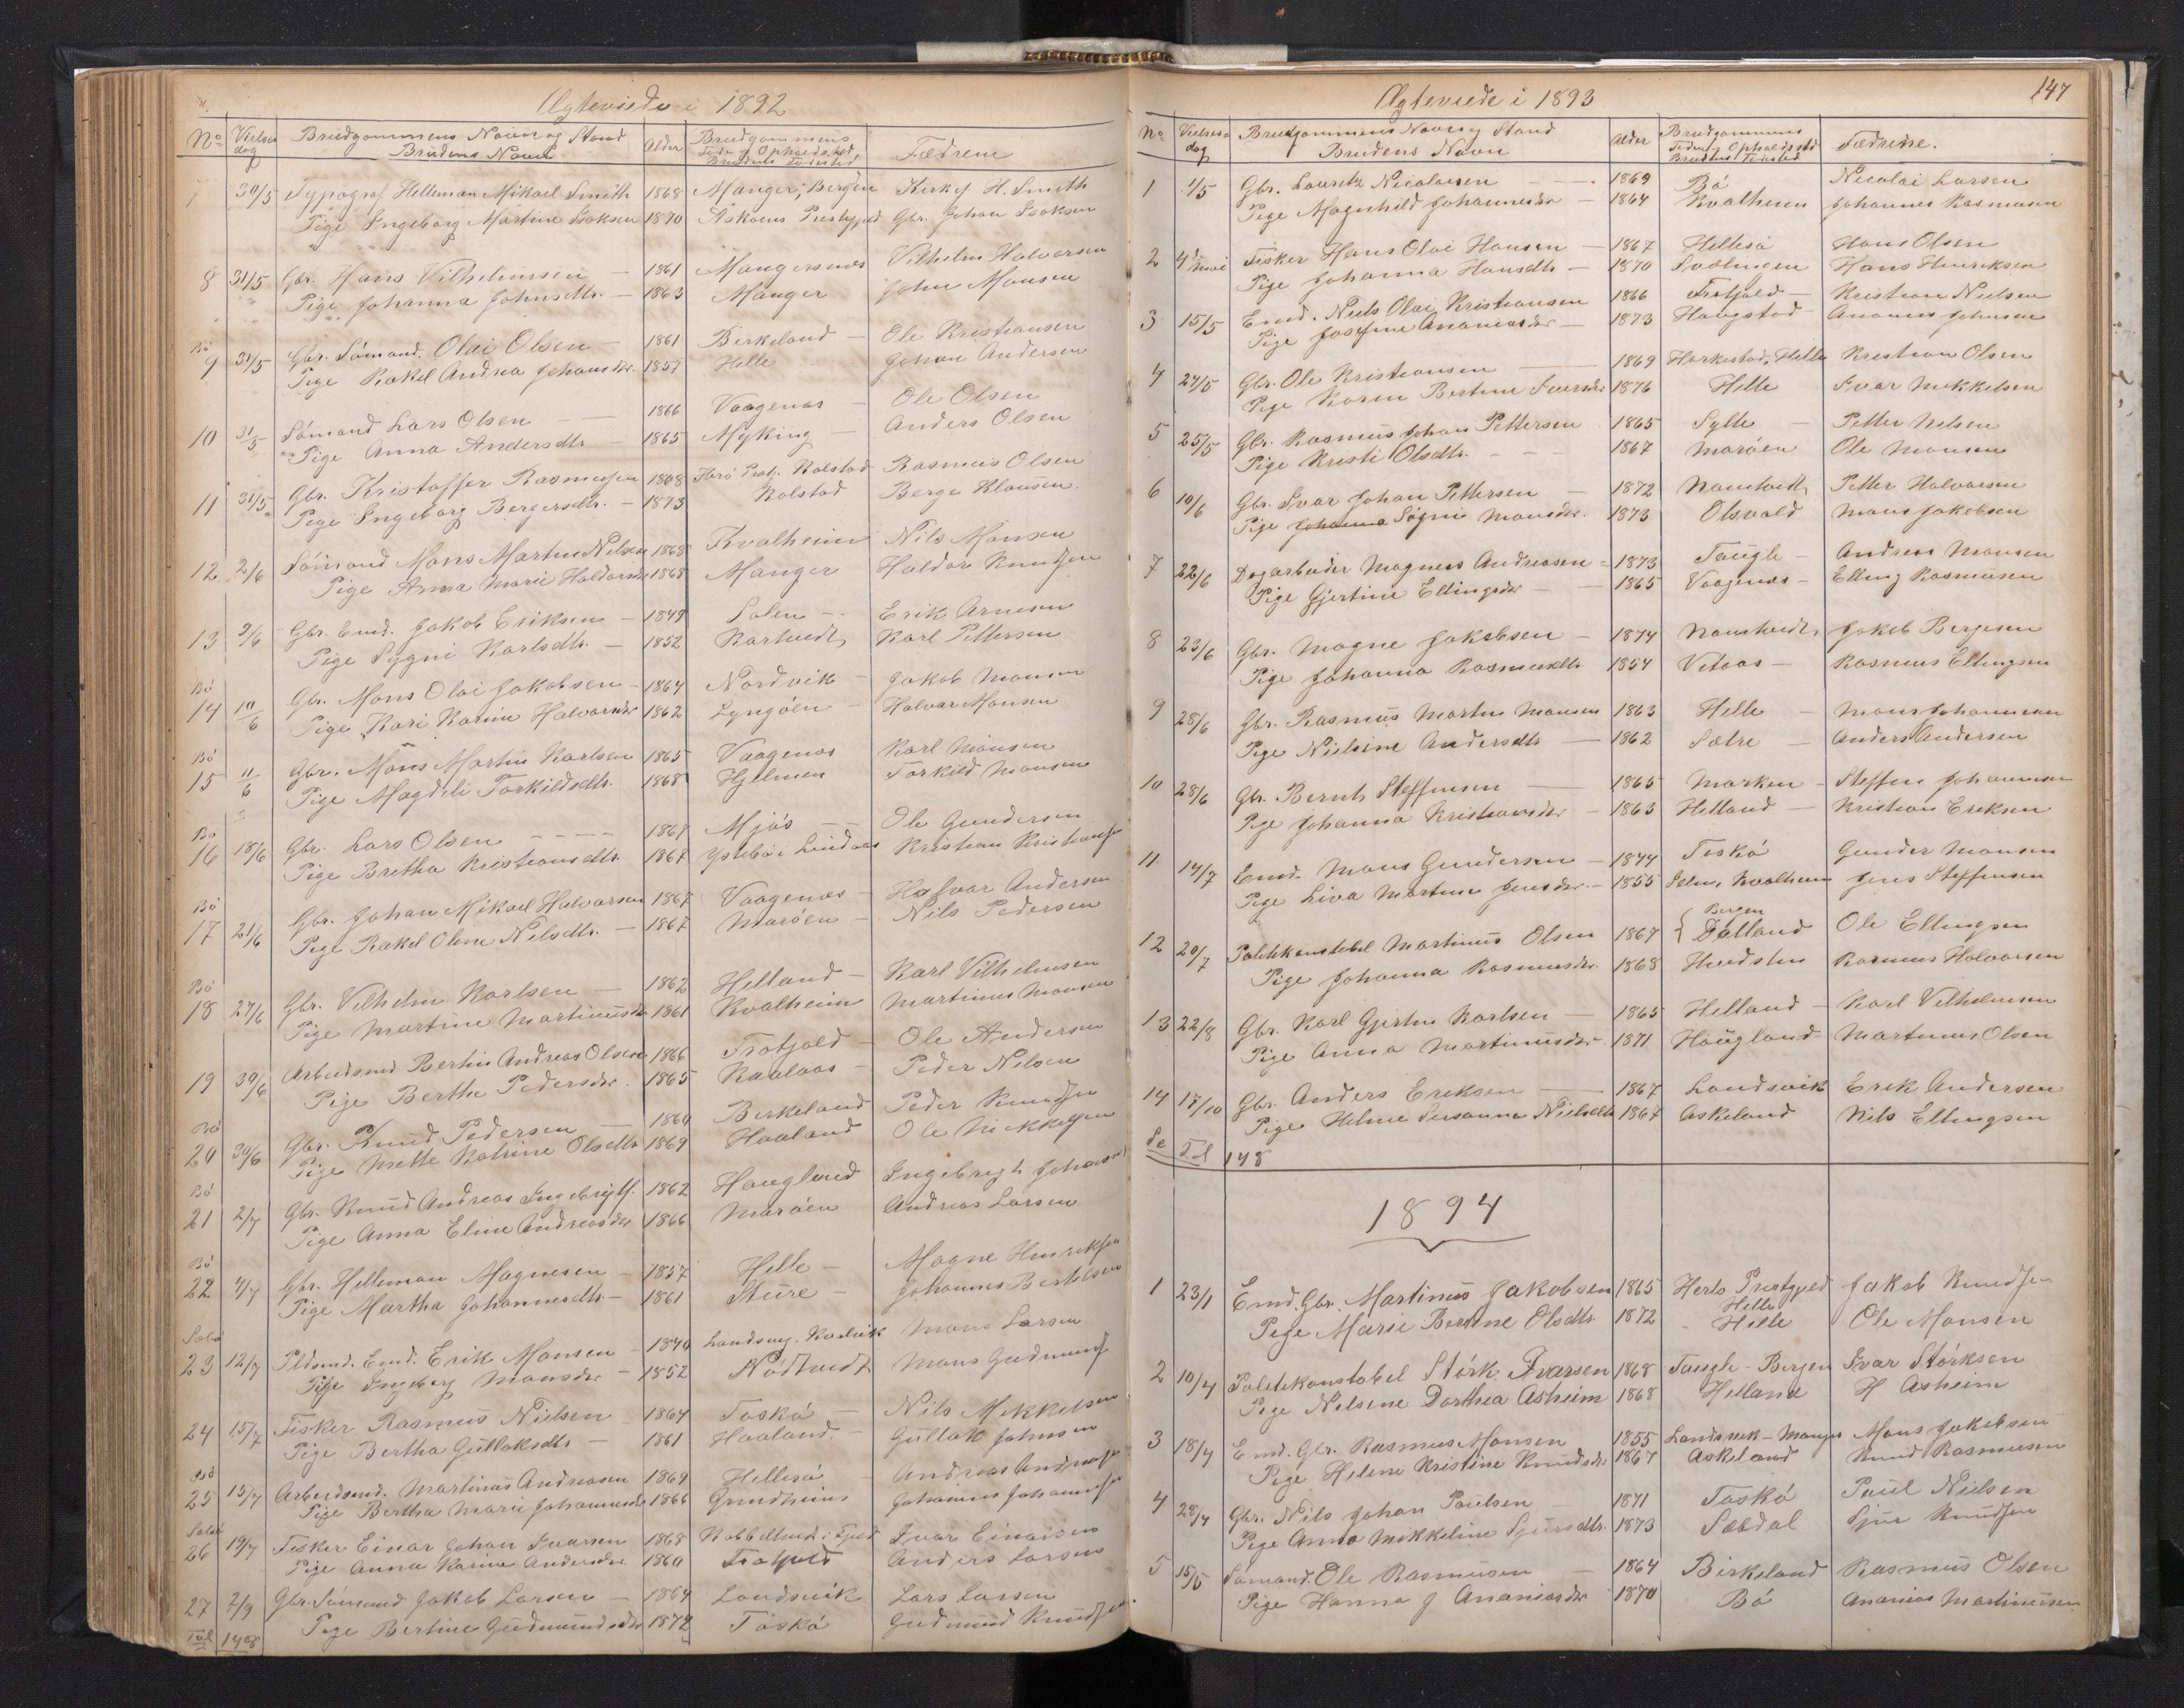 Ægteviede i 1892
No Vielses dag Brudgommens Navn og Stand Alder Brudgommens Fædrene
Brudens Navn Føde og Opholdssted
Brudens Fødested
7 30/5 Typograf Helleman Mikael Smith 1868 Manger, Bergen Kirkes. H. Smith
Pige Ingeborg Martine Isaksen 1870 Askøens Prestegjed Gbr. Johan Isaksen
8 31/5 Gbr. Hans Vilhelmsen 1861 Mangersnes Vilhelm Halvorsen
Pige Johanna Johnsdtr. 1863 Manger John Monsen
Bø
9 31/5 Gbr. Sømand. Olai Olsen 1861 Birkeland Ole Kristiansen
Pige Rakel Andrea Johansdr. 1857 Helle Johan Andersen
10 31/5 Sømand Lars Olsen 1866 Vaagenes Ole Olsen
Pige Anna Andersdtr 1865 Myking Anders Olsen
11 31/5 Gbr. Kristoffer Rasmussen 1868 Rolstad Rasmus Olsen
Pige Ingeborg Bergersdtr. 1873 Rolstad Berge Klausen
12 2/6 Sømand Mons Martin Nilsen 1868 Kvalheim Nils Monsen
Pige Anna Marie Haldorsdr 1868 Manger Haldor Knudsen
13 9/6 Gbr. Emd. Jakob Eriksen 1849 Solem Erik Arnesen
Pige Sygni Karlsdtr. 1852 Kartvedt Karl Pettersen
Bø
14 10/6 Gbr. Mons Olai Jakobsen 1864 Nordvik Jakob Monsen
Pige Kari Karine Halvorsdr 1862 Lyngøen Halvor Monsen
Bø
15 11/6 Gbr. Mons Martin Karlsen 1865 Vaagenes Karl Monsen
Pige Magdeli Torkildsdtr. 1868 Hjelmen Torkild Monsen
Bø
16 18/6 Gbr. Lars Olsen 1867 Mjøs Ole Gundersen
Pige Bretha Kristiansdtr. 1867 Ystebø i Lindaas Kristian Kristiansen
Bø
17 21/6 Gbr. Johan Mikael Halvorsen 1867 Vaagenes Halvor Andersen
Pige Rakel Oline Nilsdtr. 1867 Marøen Nils Pedersen
Bø
18 27/6 Gbr. Vilhelm Karlsen 1862 Helland Karl Vilhelmsen
Pige Martine Martinusdr 1861 Kvalheim Martinus Monsen
19 30/6 Arbeidsmd Bertin Andreas Olsen 1866 Trotjold Ole Andersen
Pige Berthe Pedersdr. 1865 Raalaas Peder Nilsen
Bø
20 30/6 Gbr. Knud Pedersen 1860 Birkeland Peder Knudsen
Pige Mette Katrine Olsdtr 1869 Haaland Ole Mikkelsen
Bø
21 2/7 Gbr. Knud Andreas Ingebrigts. 1862 Haugland Ingebrigt Johansen
Pige Anna Eline Andreasdr 1866 Marøen Andreas Larsen
Bø
22 4/7 Gbr. Helleman Magnesen 1857 Helle Magne Henriksen
Pige Martha Johannesdtr. 1861 Sture Johannes Bertelsen
Sæbø
23 12/7 Emd. Erik Monsen 1840 Mons Larsen
Pige Ingeborg Monsdr 1852 Nøttvedt Mons Gudmunds
24 15/7 Fisker Rasmus Nielsen 1864 Toskø Nils Mikkelsen
Pige Bertha Gullaksdtr 1861 Haaland Gullak Johnsen
Bø
25 15/7 Arbeidsmd. Martinus Andreasen 1869 Hellesø Andreas Andreasen
Pige Bertha Marie Johannesdr 1866 Grindheim Johannes Johannesen
Sæbø
26 19/7 Fisker Einar Johan Ivarsen 1868 Ivar Einarsen
Pige Anna Karine Andersdr 1860 Trotjold Anders Larsen
27 2/9 Gbr. Sømand Jakob Larsen 1864 Landsvik Lars Larsen
Pige Bertine Gudmundsdr 1872 Toskø Gudmund Knudsen
Tal 148
147
Ægteviede i 1893
No Vielses dag Brudgommens Navn og Stand Alder Brudgommens Fædrene.
Brudens Navn Føde og Opholdssted
Brudens Fødested
1 1/5 Gbr. Lauritz Nicolaisen 1869 Bø Nicolai Larsen
Pige Magnhild Johannesdr 1864 Kvalheim Johannes Rasmusen
2 4de Mai Fisker Hans Olai Hansen 1867 Hellesø Hans Olsen
Pige Johanna Hansdtr 1870 Svælingen Hans Henriksen
3 15/5 Emd. Niels Olai Kristiansen 1866 Trotjold Kristian Nielsen
Pige Josefine Ananiasdr 1873 Haugstad Ananias Johnsen
4 24/5 Gbr. Ole Kristiansen 1869 Harkestad, Helle Kristian Olsen
Pige Karen Bertine Iversdr 1876 Helle Ivar Mikkelsen
5 25/5 Gbr. Rasmus Johan Pettersen 1865 Sylte Petter Nelsen
Pige Kristi Olsdtr. 1867 Marøen Ole Monsen
6 10/6 Gbr. Ivar Johan Pettersen 1872 Namtvedt Petter Halvorsen
Pige Johanna Søgni Monsdr. 1873 Olsvold Mons Jakobsen
7 22/6 Dagarbeider Magnus Andreasen 1873 Taugle Andreas Monsen
Pige Gjertine Ellingsdr 1865 Vaagenes Elling Rasmusen
8 23/6 Gbr. Magne Jakobsen 1874 Namtvedt Jakob Bergesen
Pige Johanna Rasmusdtr 1854 Vetaas Rasmus Ellingsen
9 28/6 Gbr. Rasmus Martin Monsen 1863 Helle Mons Johannesen
Pige Nielsine Andersdtr 1862 Sætre Anders Andersen
10 28/6 Gbr. Bernt Steffensen 1865 Marken Steffen Johannesen
Pige Johanna Kristiansdr 1863 Helland Kristian Eriksen
11 14/7 Emd. Mons Gundersen 1844 Toskø Gunder Monsen
Pige Liva Martine Jensdr. 1855 Selm, Kvalheim Jens Steffensen
Bergen
12 20/7 Politikonstabel Martinus Olsen 1867 Dalland Ole Ellingsen
Pige Johanna Rasmusdr. 1868 Hvidsten Rasmus Halvorsen
13 22/8 Gbr. Karl Gjertin Karlsen 1865 Helland Karl Vilhelmsen
Pige Anna Martinusdr 1871 Haugland Martinus Olsen
14 17/10 Gbr. Anders Eriksen 1867 Landsvik Erik Andersen
Pige Helene Susanna Nielsdtr 1867 Askeland Nils Ellingsen
Se Tal 148
1894
1 23/1 Emd. Gbr. Martinus Jakobsen 1865 Herlø Prestegjed Jakob Knudsen
Helle
Pige Marie Bertine Olsdtr. 1872 Helle Ole Monsen
2 10/4 Politikonstabel Størk Ivarsen 1868 Taugle - Bergen Ivar Størksen
Pige Nilsine Dorthea Asheim 1868 Helland H Asheim
3 18/4 Emd. Gbr. Rasmus Monsen 1855 Landsvik - Manger Mons Jakobsen
Pige Helene Kristine Knudsdr 1867 Askeland Knud Rasmusen
4 28/4 Gbr. Nils Johan Paulsen 1871 Toskø Paul Nielsen
Pige Anna Mekkeline Sjursdtr. 1873 Sæbdal Sjur Knudsen
5 15/5 Sømand. Ole Rasmusen 1864 Birkeland Rasmus Olsen
Pige Hanna J Ananiasdr 1870 Bø Ananias Martinusen